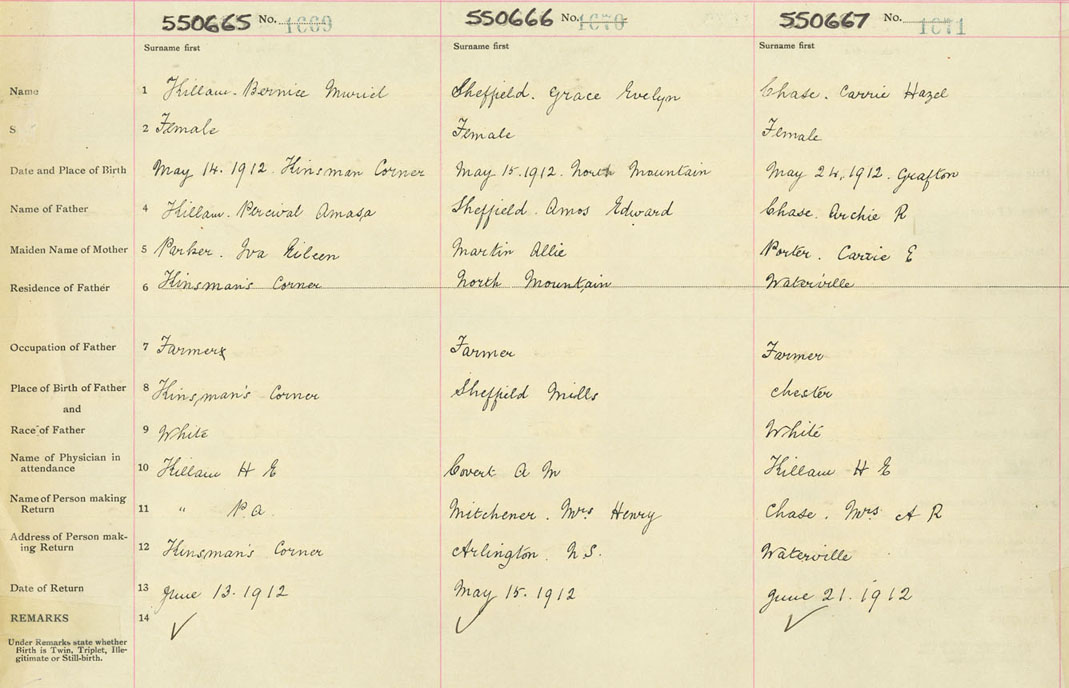 550665 No. 1669 550666 No. 1670 550667 No. 1671
Surname first Surname first Surname first
Name 1 Killam. Bernice Muriel Sheffield. Grace Evelyn Chase. Carrie Hazel
S 2 Female Female Female
Date and Place of Birth May 14. 1912. Kinsman Corner May 15. 1912. North Mountain May 24, 1912. Grafton
Name of Father 4 Killam. Percival Amasa Sheffield. Amos Edward Chase. Archie R
Maiden Name of Mother 5 Parker. Iva Eileen Martin Allie Porter. Carrie E
Residence of Father 6 Kinsman's Corner North Mountain Waterville
Occupation of Father 7 Farmer Farmer Farmer
Place of Birth of Father 8 Kinsman's Corner Sheffield Mills Chester
and
Race of Father 9 White White
Name of Physician in
attendance 10 Killam H E Covert A M Killam H E
Name of Person making
Return 11 " P. A. Mitchener. Mrs Henry Chase. Mrs A R
Address of Person mak-
ing Return 12 Kinsman's Corner Arlington. N.S. Waterville
Date of Return 13 June 13. 1912 May 15. 1912 June 21. 1912
REMARKS 14
Under Remarks state whether
Birth is Twin, Triplet, Ille-
gitimate or Still-birth.